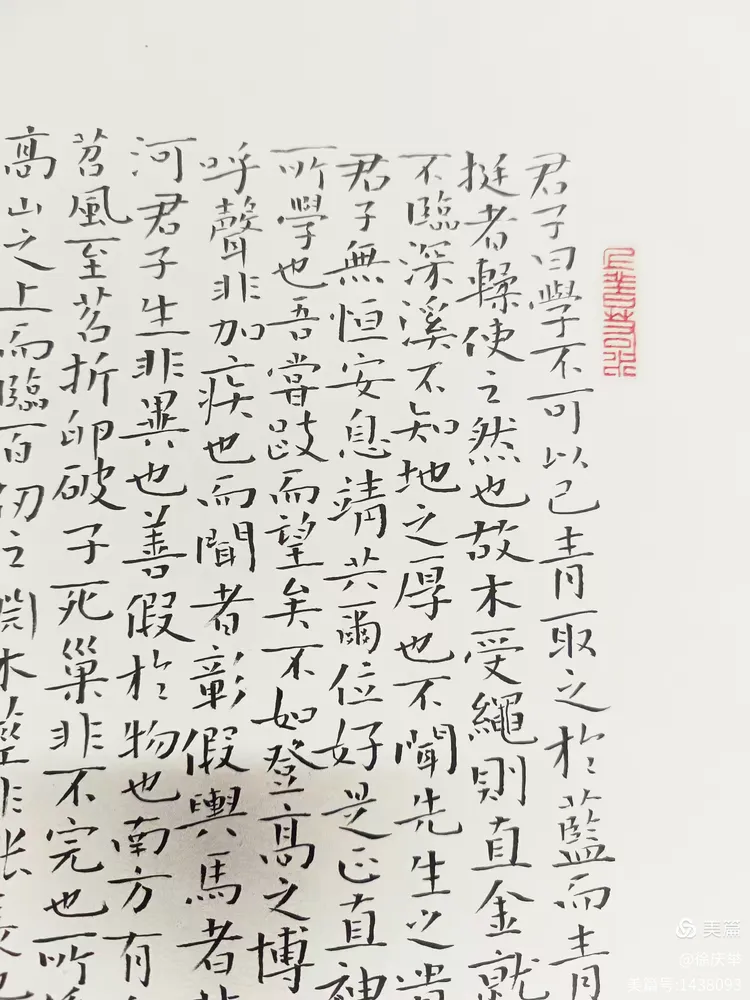 君子曰學不可以已青取之於藍而青
挺者輮使之然也故木受繩則直金就
不臨深溪不知地之厚也不聞先生之遺
君子無恒安息靖共爾位好是正直神
所學也吾嘗跂而望矣不如登高之博
呼聲非加疾也而聞者彰假輿馬者非
河君子生非異也善假於物也南方有
苕風至苕折卵破子死巢非不完也所
高山之上而臨百仞之淵木莖非
上善若水
美篇
@徐庆华
美篇号:1438093